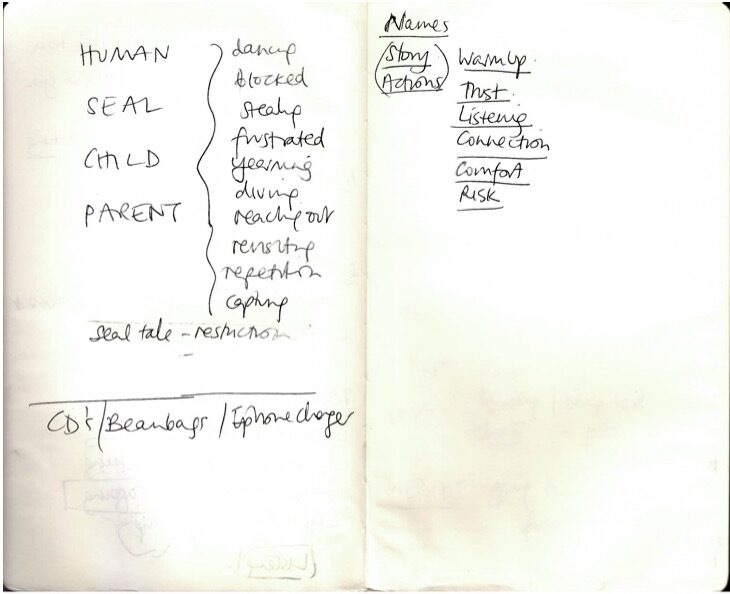 HUMAN
SEAL
CHILD
PARENT
dancing
blocked
stealing
frustrated
yearning
diving
reaching out
revisiting
repetition
capturing
seal tale - restriction
CD's / Beanbags / Iphone charger
Names
Story
Actions
Warm Up.
Trust.
Listening
Connection
Comfort
Risk